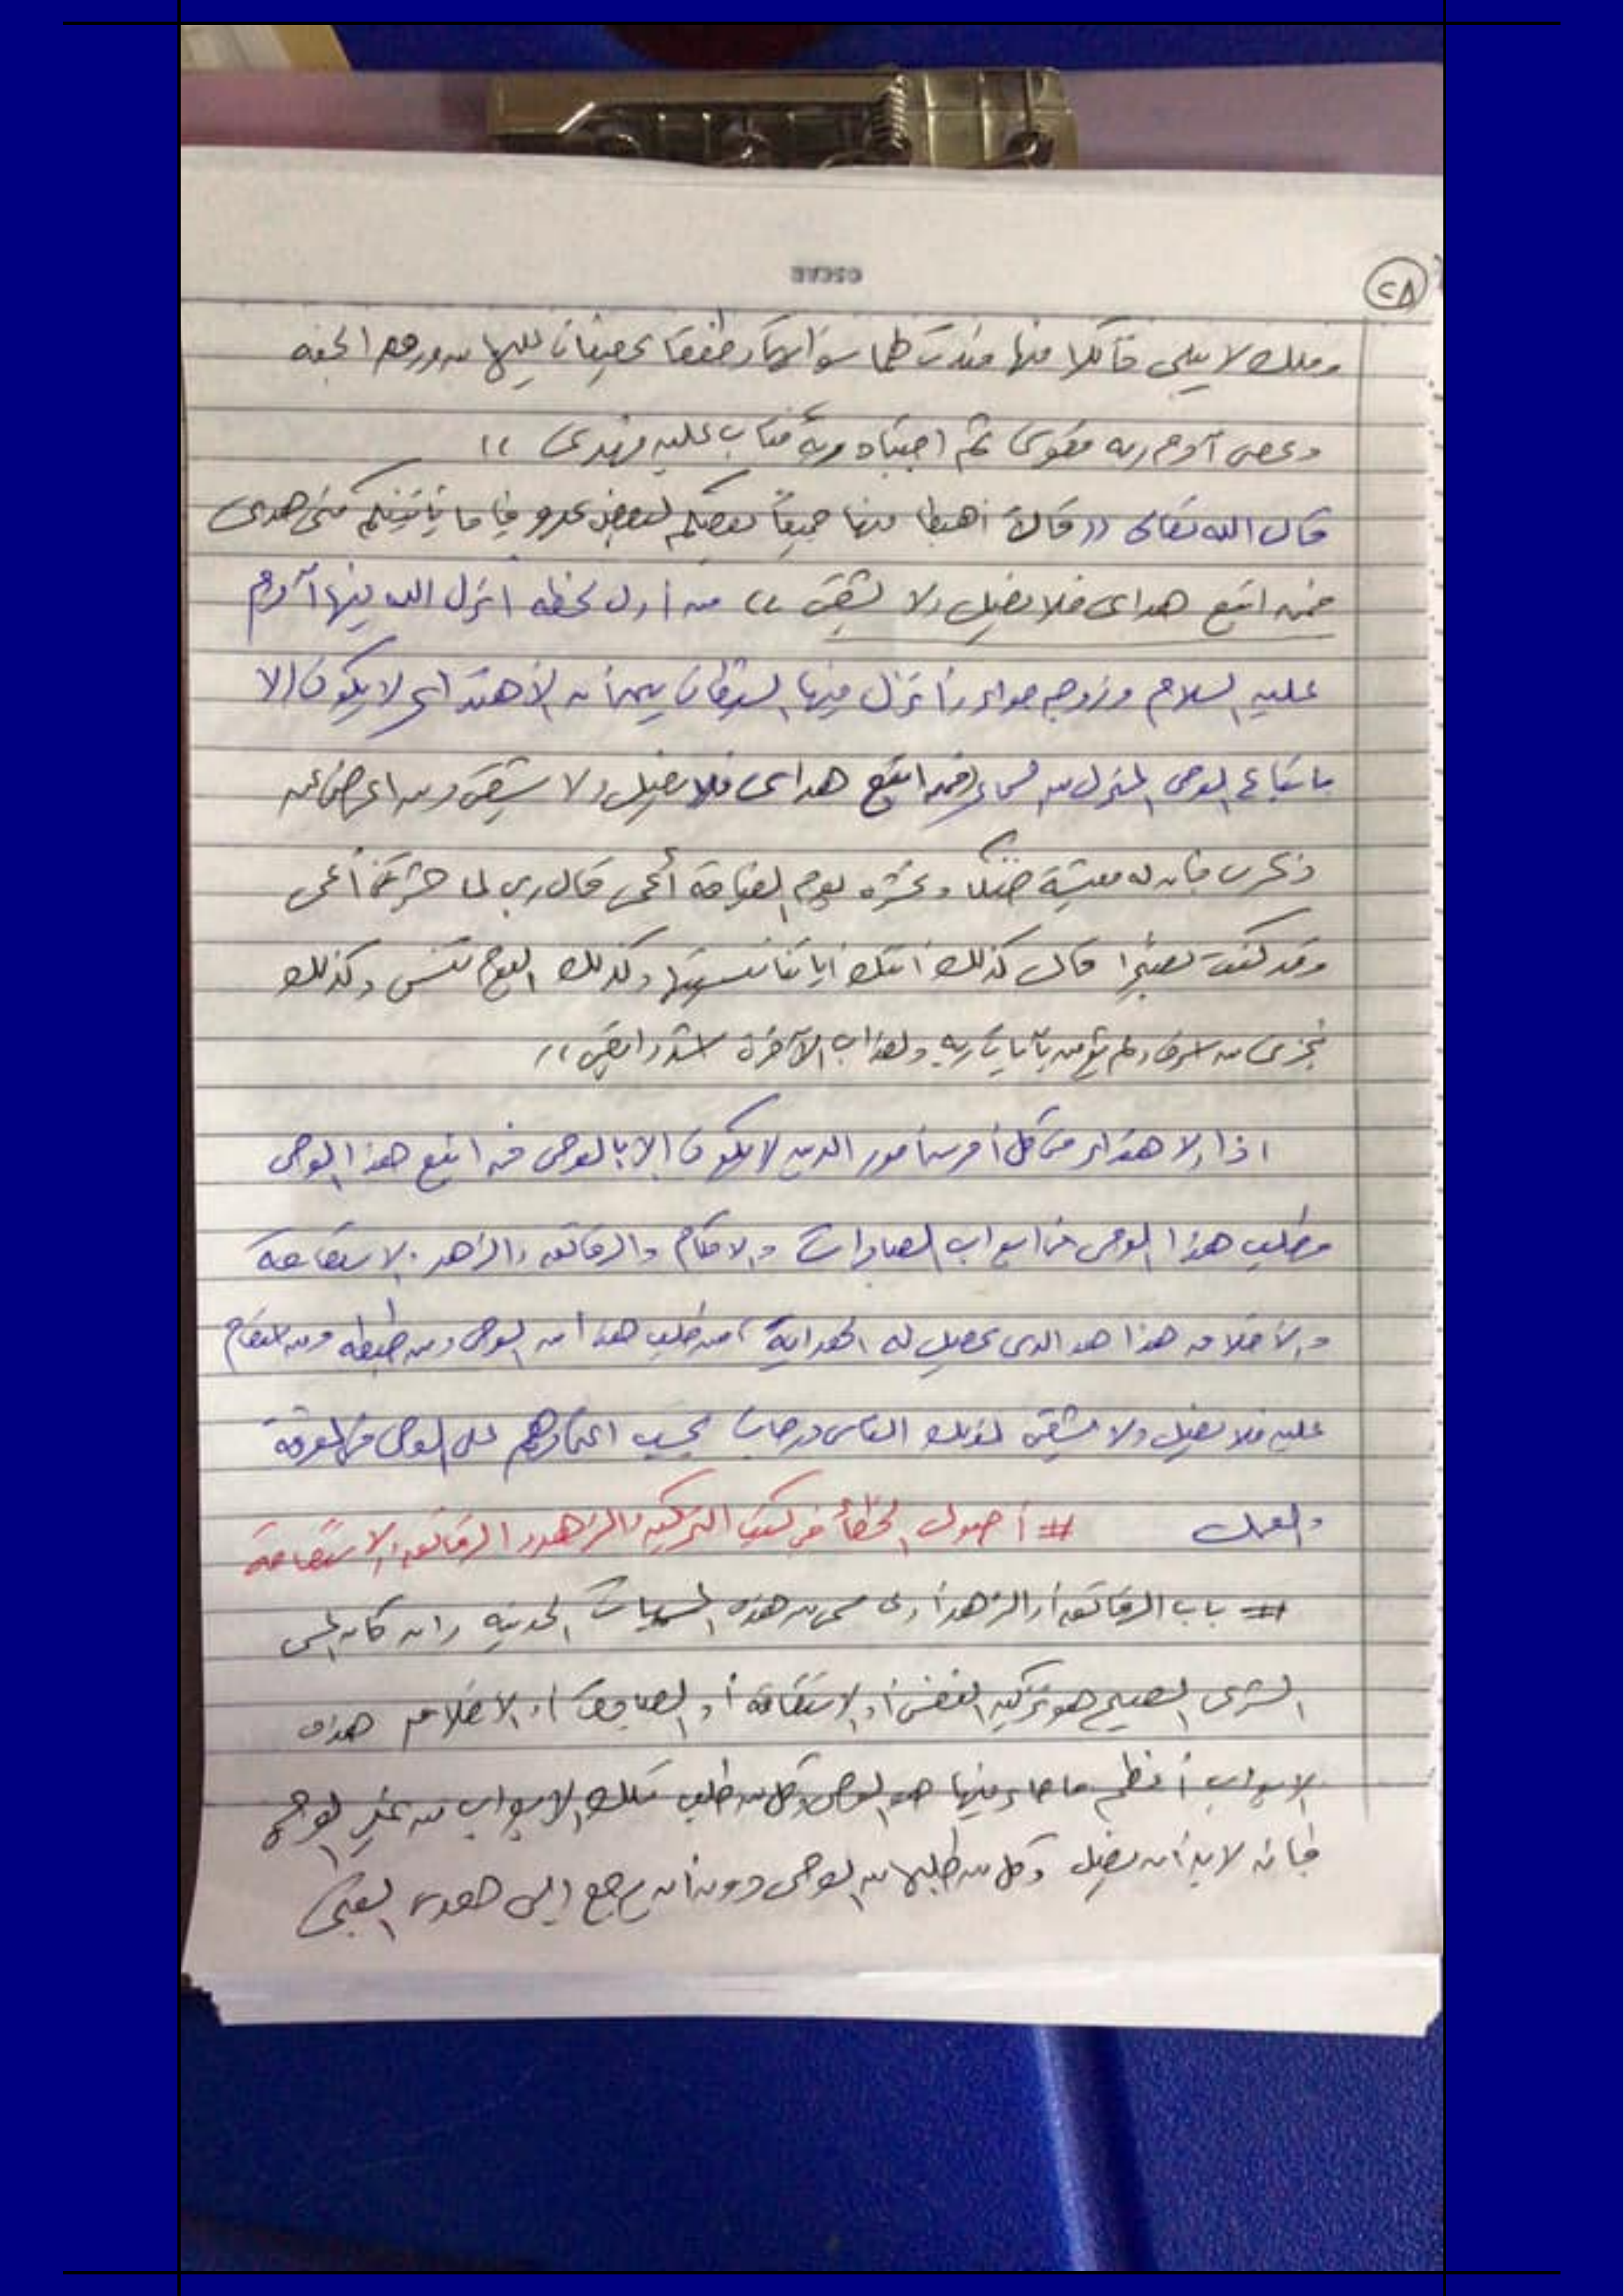 ٢٨
وملك لا يبلى فأكلا منها فبدت لهما سوآتهما وطفقا يخصفان عليهما من ورق الجنه
وعصى آدم ربه فغوى ثم اجتباه ربه فتاب عليه وهدى ))
قال الله تعالى (( قال اهبطا منها جميعاً بعضكم لبعض عدو فإما يأتينكم منى هدى
فمن اتبع هداى فلا يضل ولا يشقى )) من أول لحظه أنزل الله فيها آدم
عليه السلام وزوجه حواء وأنزل فيها الشيطان بين أن الأهتداء لا يكون الا
باتباع الوحى المنزل من السماء فمن اتبع هداى فلا يضل ولا يشقى ومن اعرض عن
ذكرى فإن له معيشة ضنكاً ونحشره يوم القيامة أعمى قال ربى لما حشرتنى أعمى
وقد كنت بصيرا قال كذلك أتتك أياتنا فنسيتها وكذلك اليوم تنسى وكذلك
نجزى من اسرف ولم يؤمن بآيات ربه ولعذاب الآخرة اشد وابقى ))
اذا الاهتداء فى كل أمر من أمور الدين لا يكون الا بالوحى فمن اتبع هذا الوحى
وطلب هذا الوحى فى ابواب العبادات والاحكام والرقائق والزهد والاستقامة
والأخلاق هذا هو الذى يحصل له الهداية، من طلب هذا من الوحى ومن ضبطه ومن استقام
عليه فلا يضل ولا يشقى لذلك الناس درجات بحسب اعتمادهم على الوحى فى المعرفة
والعمل # أصول الخطأ فى كتب التزكيه والزهد والرقائق والاستقامة
# باب الرقائق أو الزهد أو أى مسمى من هذه المسميات الحديثه وان كان المسمى
الشرعى الصحيح هو تزكيه النفس أو الاستقامة أو العبادة أو الأخلاق هذه
الابواب أعظم ما جاء فيها هو الوحى وكل من طلب تلك الابواب من غير الوحى
فإنه لابد أن يضل وكل من طلبها من الوحى دون أن يرجع إلى هدى النبى